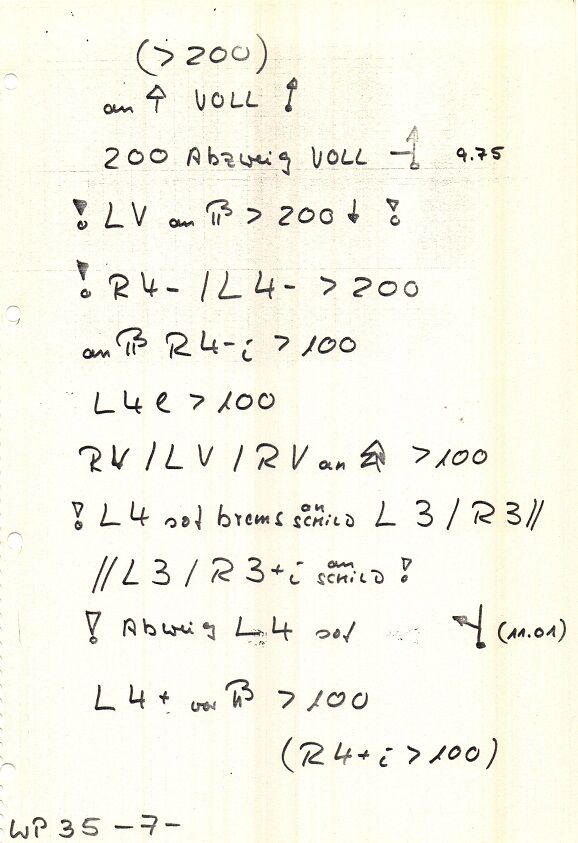 (>200)
an VOLL
200 Abzweig VOLL 9.75
! LV an > 200 !
! R4- / L4- > 200
an R4-i > 100
L4 e > 100
RV / LV / RV an > 100
! L4 sof brems an SCHILD L3 / R3 //
// L3 / R3+i an SCHILD !
! Abweig L4 sof (11.01)
L4+ vor > 100
(R4+i > 100)
WP 35 -7-